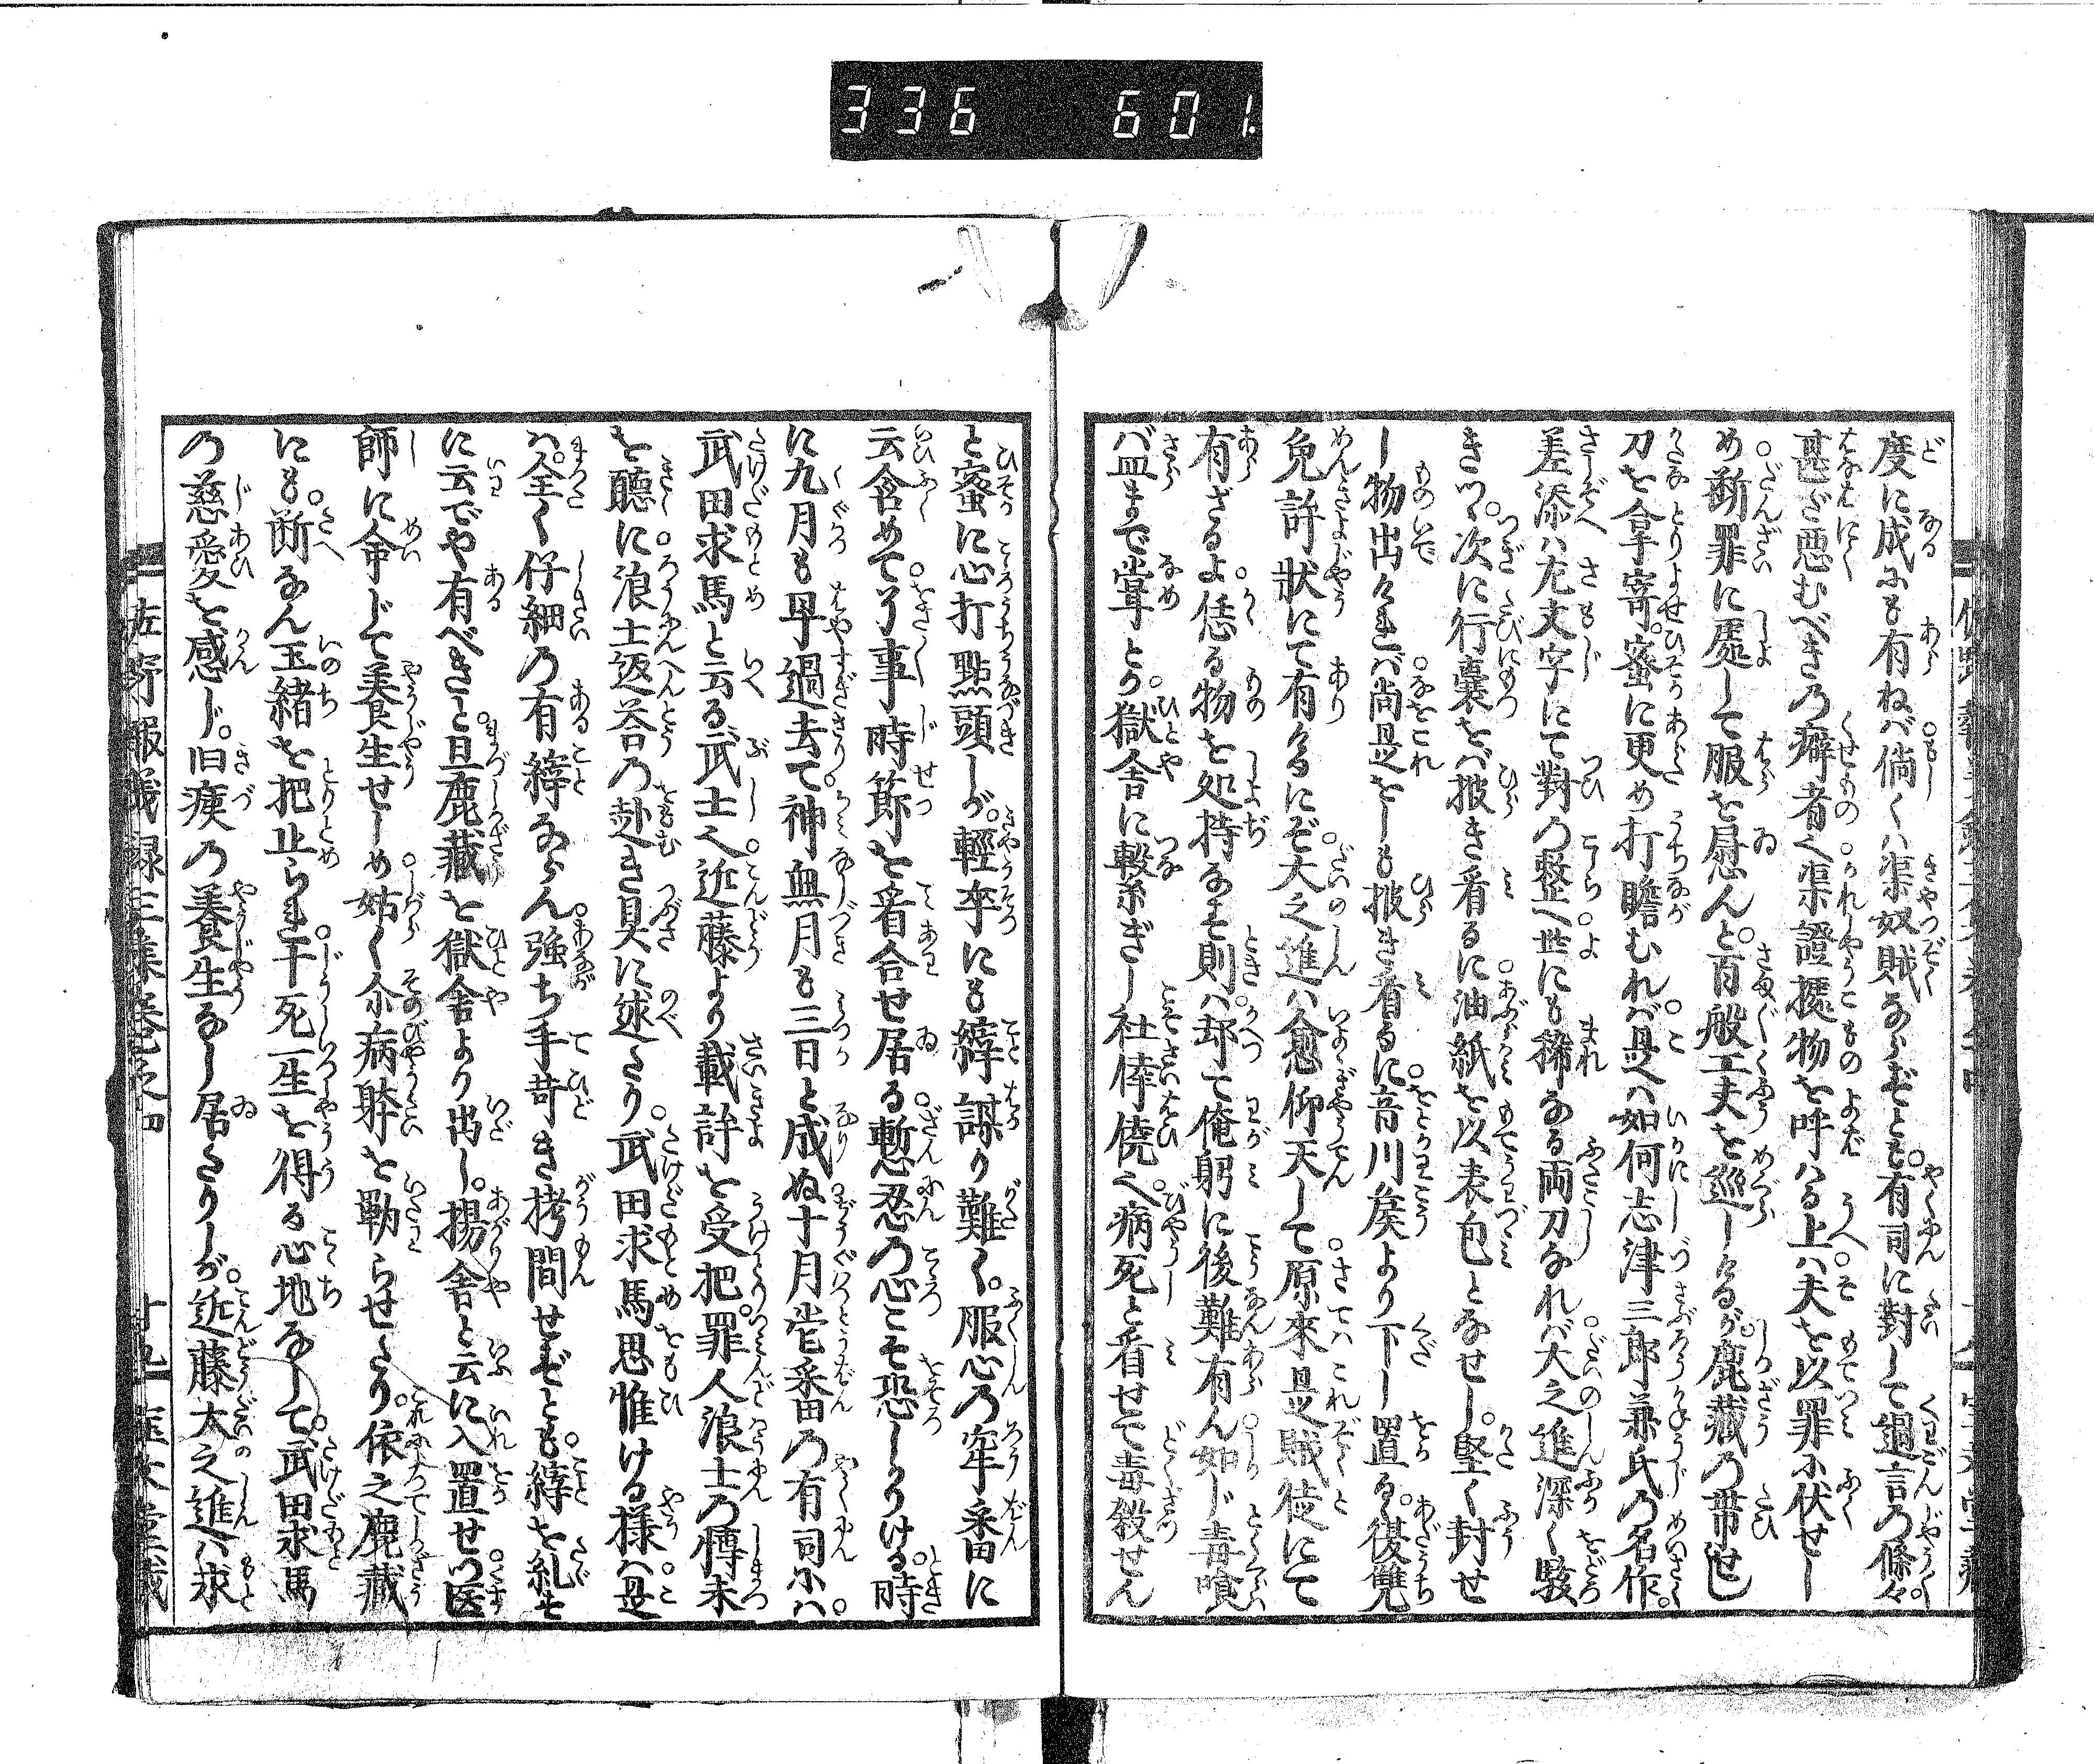 336 601.
度に成ふも有ねバ倘くハ渠奴賊ならずとも。有司に對して過言の條々。
甚だ悪むべきの癖者之渠證據物を呼ハる上ハ夫を以罪ふ伏せし
め断罪に處して服を慰んと。百般工夫を巡しけるが。鹿藏の帯せし
刀を拿寄。蜜に更め打瞻むれバ是ハ如何志津三郎兼氏の名作。
差添ハ左文字にて對の整へ世にも稀なる両刀なれバ大之進深く駭
きつゝ。次に行嚢をバ披き看るに油紙を以表包となせし。堅く封せ
し物出けれバ尚是をしも披き看るに。音川矦より下し置る。復讐
免許狀にて有けるにぞ大之進ハ愈仰天して原來是賊徒にて
有ざるよ恁る物を処持なす則ハ却て俺躬に後難有ん如じ毒喰
バ皿まで甞とか。獄舎に繋ぎし社倖僥之。病死と看せて毒殺せん
と蜜に心打點頭しが。輕卒にも縡謀り難く。服心の牢番に
云含めて了事時節を着合せ居る慙忍の心こそ恐しかりける。時
に九月も早過去て。神無月も三日と成ぬ十月當番の有司ふハ。
武田求馬と云る武士之近藤より載許を受把。罪人浪士の慱未
を聴に浪士返荅の趣き具に述たり。武田求馬思惟ける樣ハ是
ハ。全く仔細の有縡ならん強ち手苛き拷間せずとも。縡を糺す
に云でや有べきと。且鹿藏を獄舎より出し。揚舎と云に入置せつ医
師に命じて養生せしめ姑く尒病躰を勦らせたり。依之鹿藏
にも。断なん玉緒を把止られ十死一生を得る心地なして。武田求馬
の慈愛を感じ。旧痍の養生なし居たりしが。近藤大之進ハ求
佐野報義録三集卷之四 十九 玉水堂藏